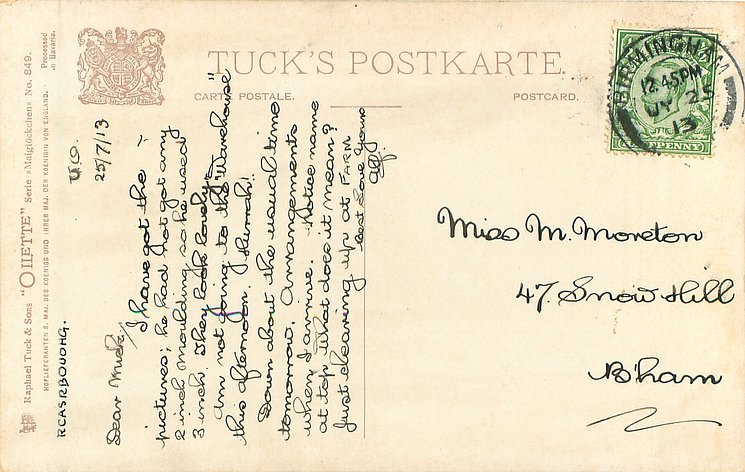 TUCK'S POSTKARTE.
CARTE POSTALE.
POSTCARD.
Raphael Tuck & Sons "OILETTE" Serie »Maiglöckchen« No. 849.
HOFLIEFERANTEN S. MAJ. DES KOENIGS UND IHRER MAJ. DER KOENIGIN VON ENGLAND.
Processed
in Bavaria.
BIRMINGHAM
12.45PM
JY 25
13
RCASRBOUOHG.
25/7/13
Dear Mick/
I have got the -
pictures; he had not got any
2 inch moulding, so he used
3 inch. They look lovely.
Am not going to the "Warehouse"
this afternoon. Hurrah!
Down about the usual time
tomorrow. Arrangements
when I arrive. Notice name
at top. What does it mean?
Just clearing up at FARM
Best Love Yours
Miss M. Moreton
47. Snow Hill
B'ham